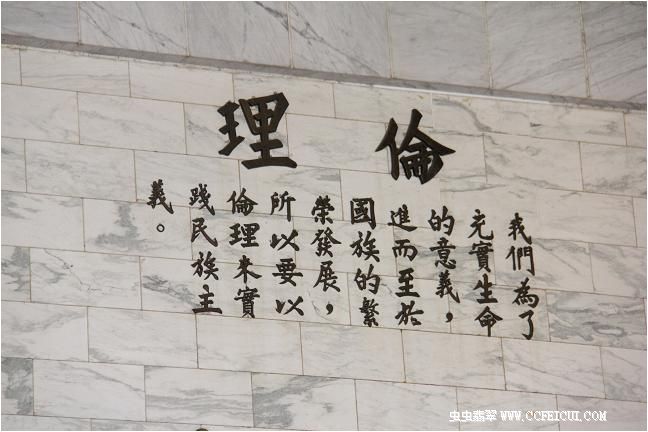 倫理
我們為了
充實生命
的意義，
進而至於
國族的繫
榮發展，
所以要以
倫理來實
踐民族主
義。
虫虫翡翠 WWW.CCFEICUI.COM